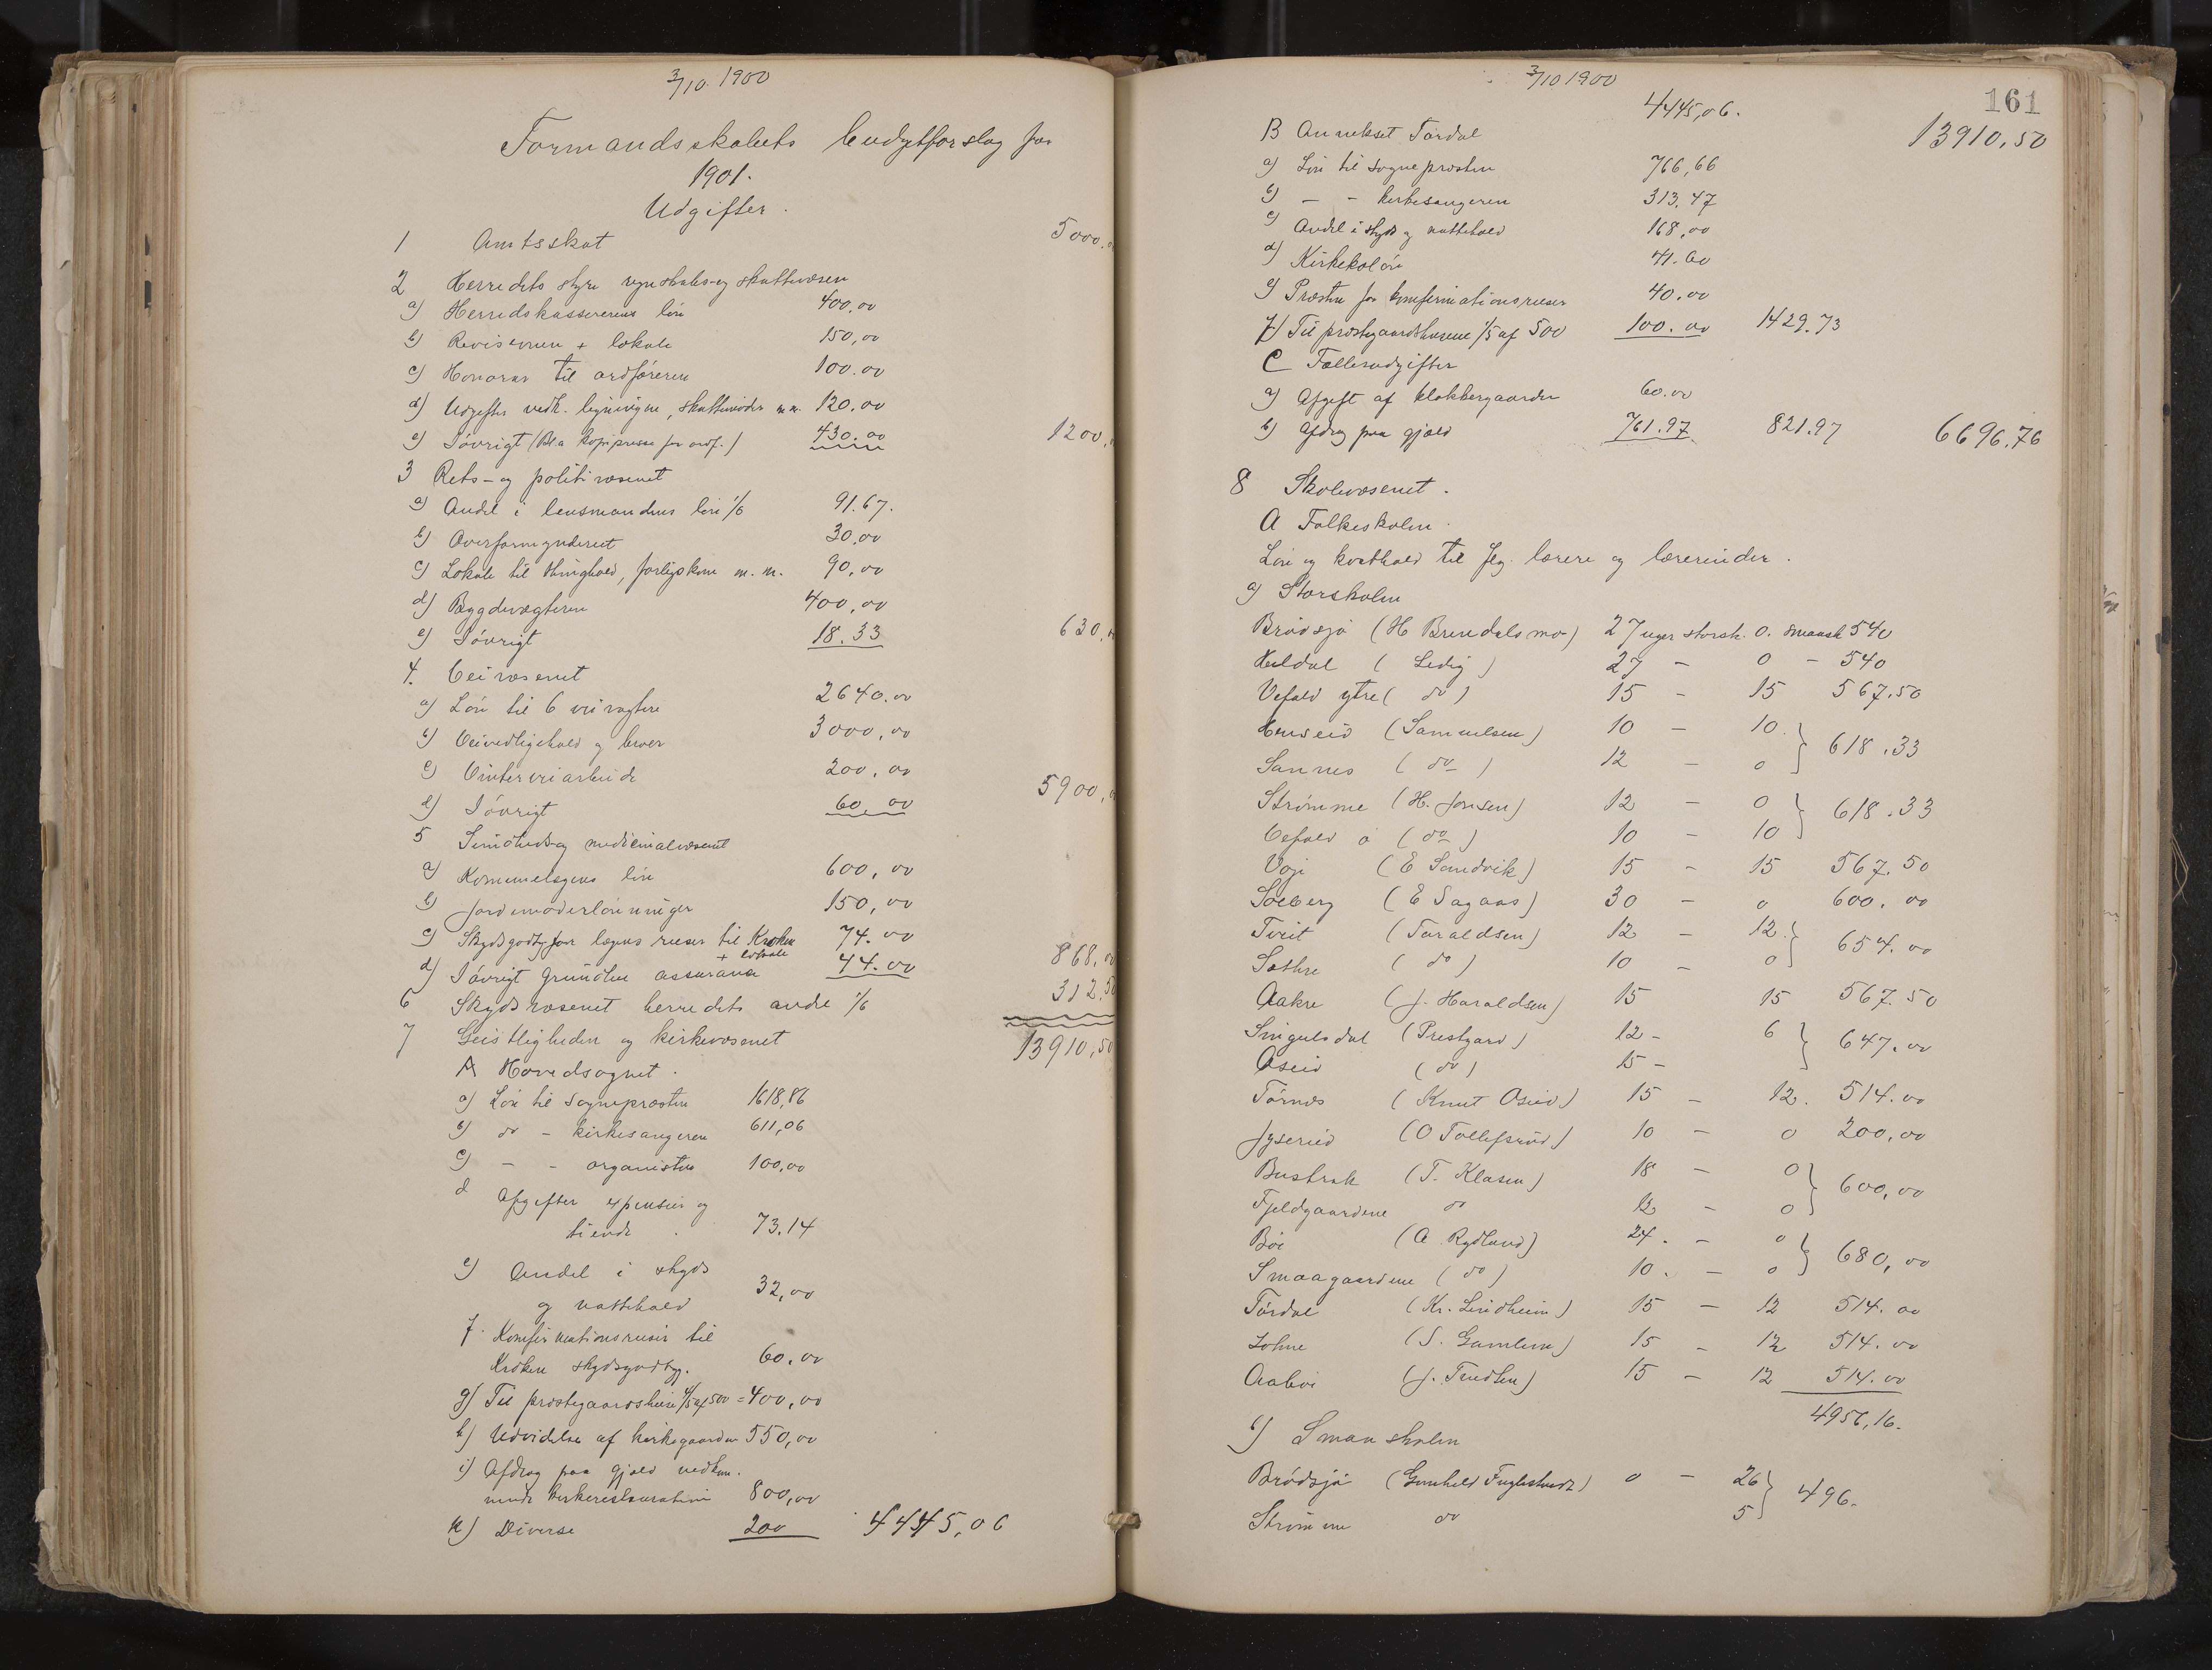 3/10 1900
Formandsskabets budgetforslag for
1901.
Udgifter.
1 Amtsskat 5000.
2 Herredets styre regnskabs- og skattevæsen
a) Herredskassererens løn 400,00
b) Revisionen + lokale 150,00
c) Honorar til ordføreren 100.00
d) Udgifter vedk. ligningen, skattemøder m.m. 120.00
e) Iøvrigt (Bl.a kopipresse for ordf.) 430.00 1200,
3 Rets- og politivæsenet
a) Andel i lensmandens løn 1/6 91.67.
b) Overformynderiet 30,00
c) Lokale til thinghold, forligskom m.m. 90,00
d) Bygdevægteren 400,00
e) Iøvrigt 18.33 630,
4. Veivæsenet
a) Løn til 6 veivogtere 2640.00
b) Veivedligehold og broer 3000,00
c) Vinterveiarbeide 200,00
d) Iøvrigt 60,00 5900,
5 Sundheds- og medicinalvæsenet
a) Kommunelægens løn 600,00
b) Jordemoderlønninger 150,00
c) Skydsgodtg. for lægens reiser til Kroken 74.00
+ lokale
d) Iøvrigt Grundhei assurance 44.00 868,
6 Skydsvæsenet herredets andel 1/6 312,50
7 Geistligheden og kirkevæsenet 13910,50
A Hovedsognet.
a) Løn til Sognepræsten 1618,86
b) do - kirkesangeren 611,06
c) - - organisten 100,00
d Afgifter expensier og
tiende . 73.14
e) Andel i skyds
og nattehold 32,00
f. Konfirmationsreiser til
Kroken skydsgodtg. 60.00
g) Til præstegaardshusene 4/5 af 500 = 400,00
h) Udvidelse af kirkegaarden 550,00
i) Afdrag paa gjæld vedkom.
mende kirkerestauration 800,00
k) Diverse 200 4445,06
3/10 1900
161
4445,06. 13910,50
B Annekset Tørdal
a) Løn til sognepræsten 766,66
b) - - kirkesangeren 313,47
c) Andel i skyds og nattehold 168,00
d) Kirkekol øre 41.60
e) Præsten for konfirmationsreiser 40.00
f) Til præstegaardshusene 1/5 af 500 100.00 1429.73
C Fællesudgifter
a) Afgift af klokkergaarden 60.00
b) Afdrag paa gjæld 761.97 821.97 6696.76
8 Skolevæsenet.
A Folkeskolen.
Løn og kosthold til flg. lærere og lærerinder.
a) Storskolen
Brødsjø (H Brendalsmo) 27 uger storsk. 0. smaask 540
Heldal (Ledig) 27 - 0 - 540
Vefald ytre (do) 15 - 15 567.50
Henseid (Samuelsen) 10 - 10
Sannes (do) 12 - 0 } 618.33
Strømme (H. Jonsen) 12 - 0
Vefald ø (do) 10 - 10 } 618.33
Voje (E Sandvik) 15 - 15 567.50
Solberg (E Sagaas) 30 - 0 600.00
Tveit (Taraldsen) 12 - 12.
Sathre (do) 10 - 0 } 654.00
Aakre (J. Haraldsen) 15 15 567.50
Singulsdal (Prestgard) 12 - 6
Oseid (do) 15 - } 647.00
Tørnes (Knut Oseid) 15 - 12. 514.00
Jyseried (O Tollefsrud) 10 - 0 200,00
Bustrak (T. Klasen) 18 - 0
Fjeldgaardene do 12 - 0 } 600,00
Bøe (A Rydland) 24. - 0
Smaagaardene (do) 10. - 0 } 680,00
Tørdal (Kr. Lindheim) 15 - 12 514.00
Lohne (S. Gamlem) 15 - 12 514.00
Aabøi (J. Tredten) 15 - 12 514.00
4956,16.
b) Smaaskolen
Brødsjø (Gunhild Fuglestvedt) 0 - 26
Strømme do 5 } 496.